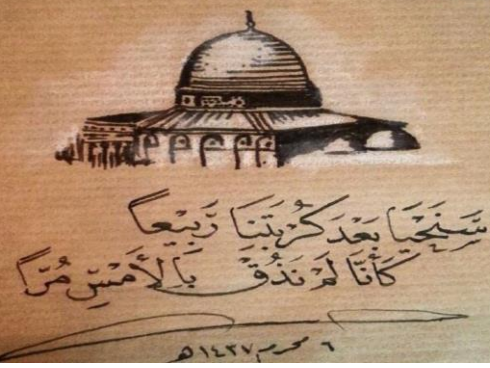 سَنَحْيَا بَعْدَ كُرْبَتِنَا رَبِيعاً
كَأَنَّا لَمْ نَذُقْ بِالأَمْسِ مُرّاً
٦ محرم ١٤٣٧هـ